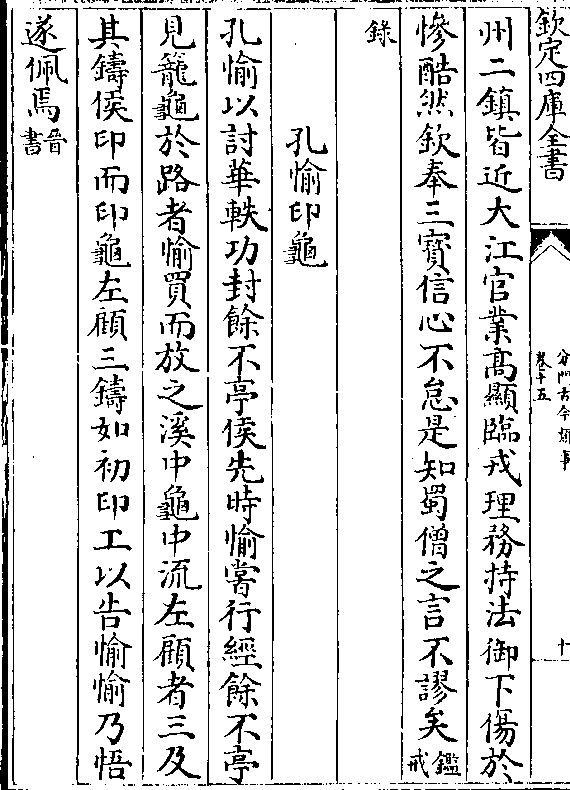 欽定四庫全書
分門古今類事
卷十五
十
州二鎮皆近大江官業高顯臨戎理務持法御下傷於
慘酷然欽奉三寳信心不怠是知蜀僧之言不謬矣鑑戒
錄
孔愉印龜
孔愉以討華軼功封餘不亭侯先時愉嘗行經餘不亭
見籠龜於路者愉買而放之溪中龜中流左顧者三及
其鑄侯印而印龜左顧三鑄如初印工以告愉愉乃悟
遂佩焉晉書